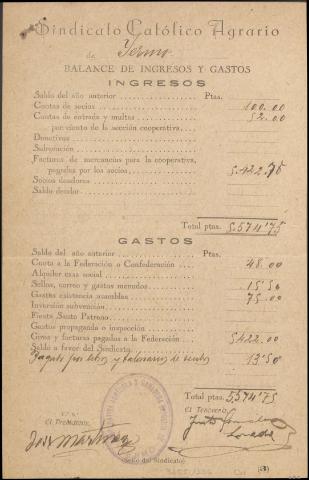 Sindicato Católico Agrario
de Yermo
BALANCE DE INGRESOS Y GASTOS
INGRESOS
Saldo del año anterior Ptas.
Cuotas de socios 100.00
Cuotas de entrada y multas 52.00
por ciento de la sección cooperativa,
Donativos
Subvención
Facturas de mercancías para la cooperativa,
pagadas por los socios 5.422.75
Socios deudores
Saldo deudor
Total ptas. 5.574'75
GASTOS
Saldo del año anterior Ptas.
Cuota a la Federación o Confederación 48.00
Alquiler casa social
Sellos, correo y gastos menudos 15'50
Gastos existencia asamblea 75.00
Inversión subvención
Fiesta Santo Patrono
Gastos propaganda o inspección
Giros y facturas pagadas a la Federación 5422.00
Saldo a favor del Sindicato
Pagado por libros y talonarios de 13'50
Total ptas. 5574'75
V.º B.º
El Presidente, El Tesorero,
José Martínez
Sello del Sindicato